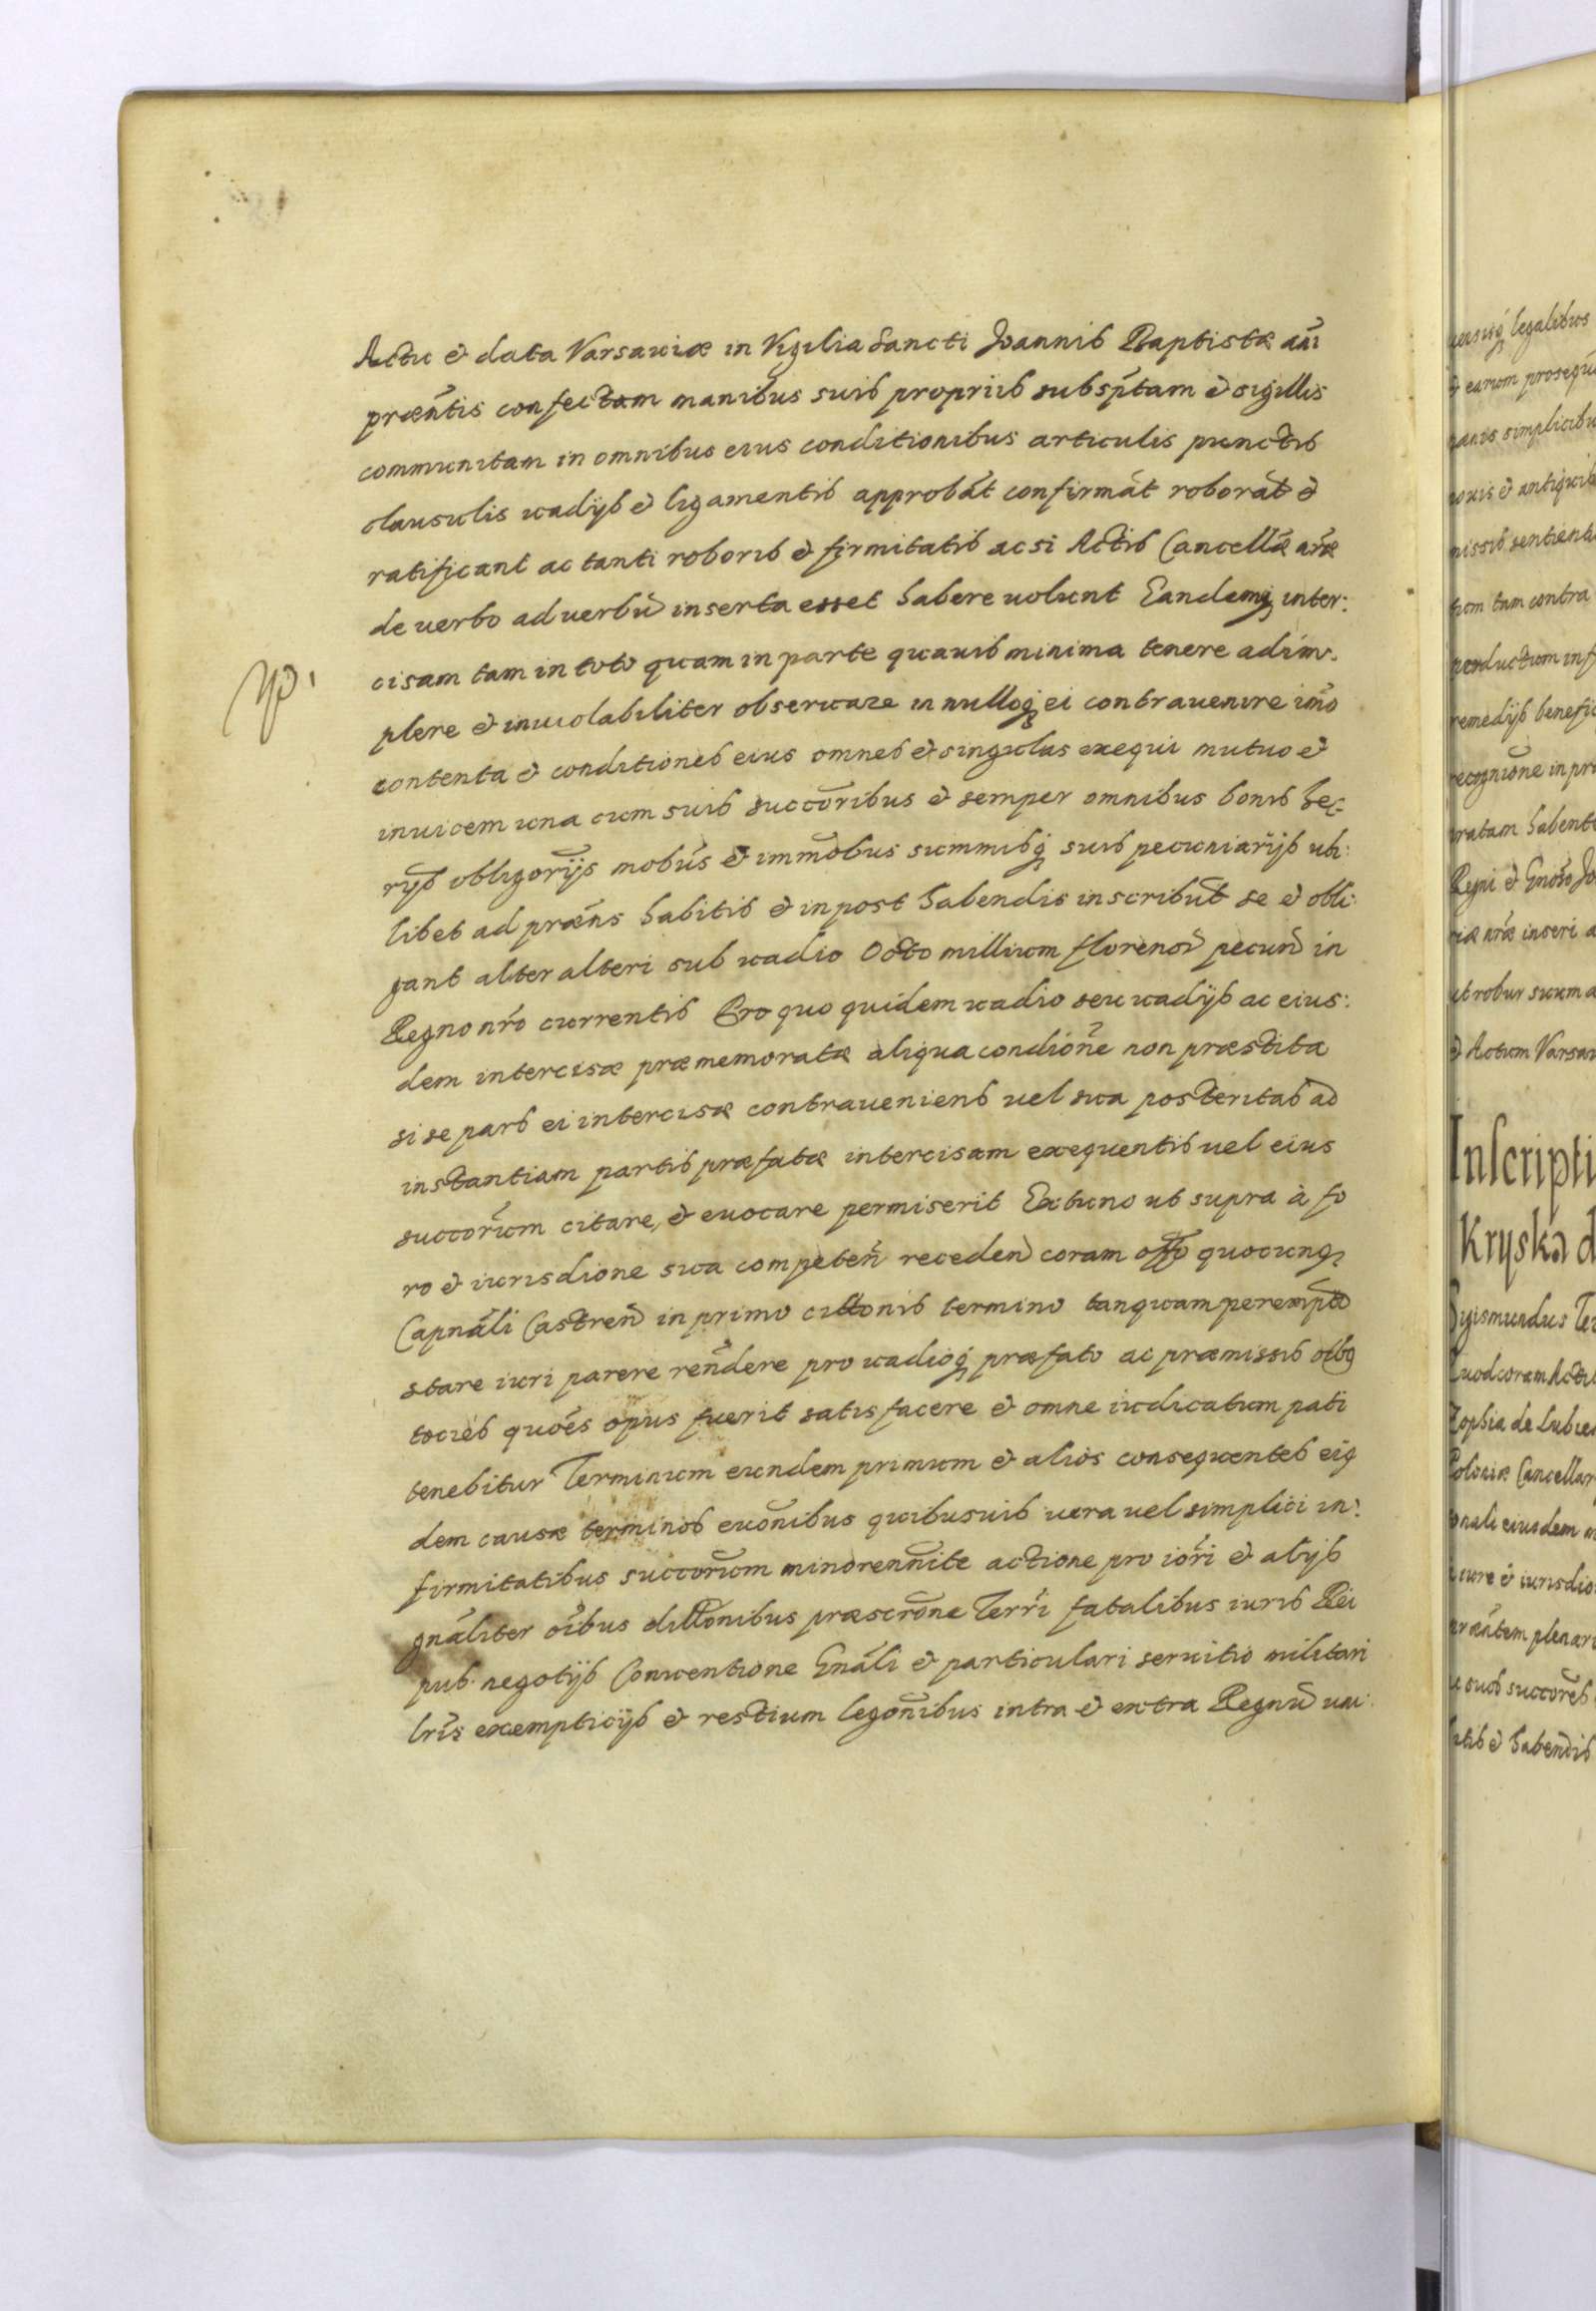 Actu et data Varsauiæ in Vigilia Sancti Joannis Baptistæ añi
præñtis confectam manibus suis propriis subsp̃tam et sigillis
communitam in omnibus eius conditionibus articulis punctis
clausulis uadijs et ligamentis approbãt confirmãt roborãt et
ratificant ac tanti roboris et firmitatis ac si Actis Cancellæ nr̃æ
de uerbo ad uerbũ inserta esset habere uolunt Eandemq; inter:
cisam tam in toto quam in parte quauis minima tenere adim:
plere et inuiolabiliter obseruare in nulloq; ei contrauenire im̃o
contenta et conditiones eius omnes et singulas exequi mutuo et
inuicem una cum suis succõribus et semper omnibus bonis hẽ:
rijs obligõrijs mobũs et immõbus summisq; suis pecuniarijs ubi:
libet ad præñs habitis et in post habendis inscribũt se et obli:
gant alter alteri sub uadio Octo millium florenoȓ pecuñ in
Regno nr̃o currentis Pro quo quidem uadio seu uadijs ac eius:
dem intercisæ præmemoratæ aliqua condiõne non præstita
si se pars ei intercisæ contraueniens uel sua posteritas ad
instantiam partis præfatæ intercisam exequentis uel eius
succõrum citare, et euocare permiserit Extunc ut supra à fo
ro et iurisdione sua competeñ recedeñ coram offo quocunq;
Capnãli Castreñ in primo cittonis termino tanquam perempto
stare iuri parere reñdere pro uadioq; præfato ac præmissis oibq
tocies quoẽs opus fuerit satisfacere et omne iudicatum pati
tenebitur Terminum eundem primum et alios consequentes eiq
dem causæ terminos euõnibus quibusuis uera uel simplici in:
firmitatibus succõrum minorennite actione pro iõri et alijs
gnãliter oĩbus dillonibus præscrõne Terrĩ fatalibus iuris Rei
pub. negotijs Conuentione Gnãli et particulari seruitio militari
lrĩs exempticijs et restium legõnibus intra et extra Regnũ uni:
legalibus
et earum
simplicibu
et antiquis
tam contra
remedijs
Regni et
inseri
et robur suum
et Actum Varsau
Inscripti
Kryska d
Sigismundus
Quod coram
Zophia de
Poloniæ Cancellar
iure et